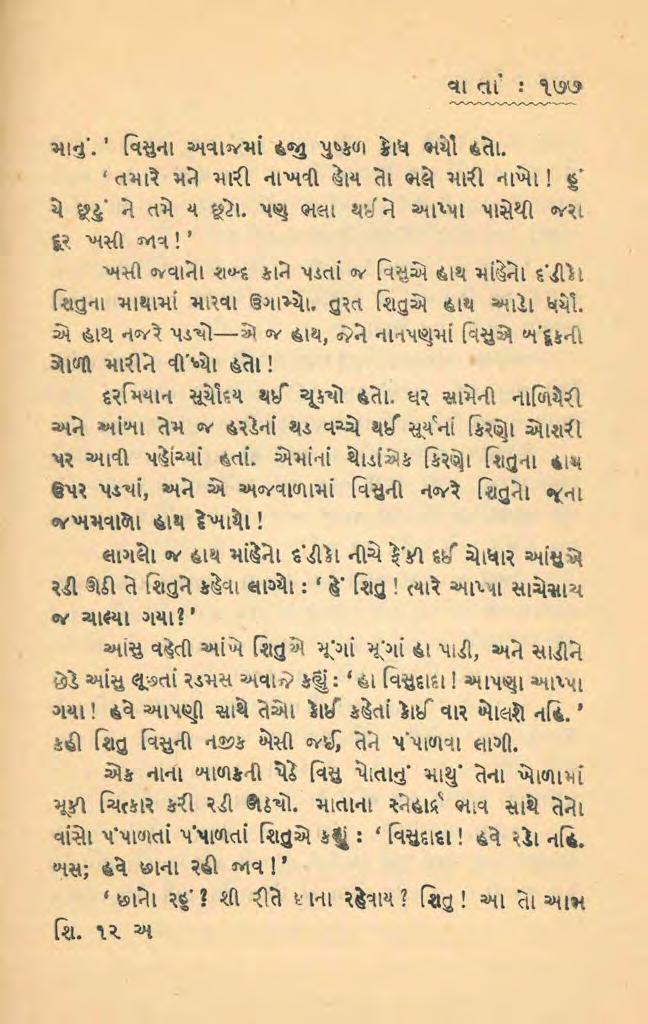 વાર્તા : ૧૭૭
માનું.' વિસુના અવાજમાં હજી પુષ્કળ ક્રોધ ભર્યો હતો.
'તમારે મને મારી નાખવી હોય તો ભલે મારી નાખો! હું
યે છૂટું ને તમે ય છૂટો. પણ ભલા થઈને આપ્પા પાસેથી જરા
દૂર ખસી જાવ!'
ખસી જવાનો શબ્દ કાને પડતાં જ વિસુએ હાથ માંહેનો દંડીકો
શિતુના માથામાં મારવા ઉગામ્યો. તુરત શિતુએ હાથ આડો ધર્યો.
એ હાથ નજરે પડયો—એ જ હાથ, જેને નાનપણમાં વિસુએ બંદૂકની
ગોળી મારીને વીંધ્યો હતો!
દરમિયાન સૂર્યોદય થઈ ચૂકયો હતો. ઘર સામેની નાળિયેરી
અને આંબા તેમ જ હરડેનાં થડ વચ્ચે થઈ સૂર્યનાં કિરણો ઓશરી
પર આવી પહોંચ્યાં હતાં. એમાંનાં થોડાંએક કિરણો શિતુના હાથ
ઉપર પડયાં, અને એ અજવાળામાં વિસુની નજરે શિતુનો જૂના
જખમવાળો હાથ દેખાયો!
લાગલો જ હાથ માંહેનો દંડીકો નીચે ફેંકી દઈ ચોધાર આંસુએ
રડી ઊઠી તે શિતુને કહેવા લાગ્યો : 'હેં શિતુ! ત્યારે આપ્પા સાચેસાચ
જ ચાલ્યા ગયા?'
આંસુ વહેતી આંખે શિતુએ મૂંગાં મૂંગાં હા પાડી, અને સાડીને
છેડે આંસુ લૂછતાં રડમસ અવાજે કહ્યું : 'હા વિસુદાદા! આપણા આપ્પા
ગયા! હવે આપણી સાથે તેઓ કોઈ કહેતાં કોઈ વાર બોલશે નહિ.'
કહી શિતુ વિસુની નજીક બેસી જઈ, તેને પંપાળવા લાગી.
એક નાના બાળકની પેઠે વિસુ પોતાનું માથું તેના ખોળામાં
મૂકી ચિત્કાર કરી રડી ઊઠયો. માતાના સ્નેહાર્દ્ર ભાવ સાથે તેનો
વાંસો પંપાળતાં પંપાળતાં શિતુએ કહ્યું : 'વિસુદાદા! હવે રડો નહિ.
બસ; હવે છાના રહી જાવ!'
'છાનો રહું? શી રીતે છાના રહેવાય? શિતુ! આ તો આભ
શિ. ૧૨ અ